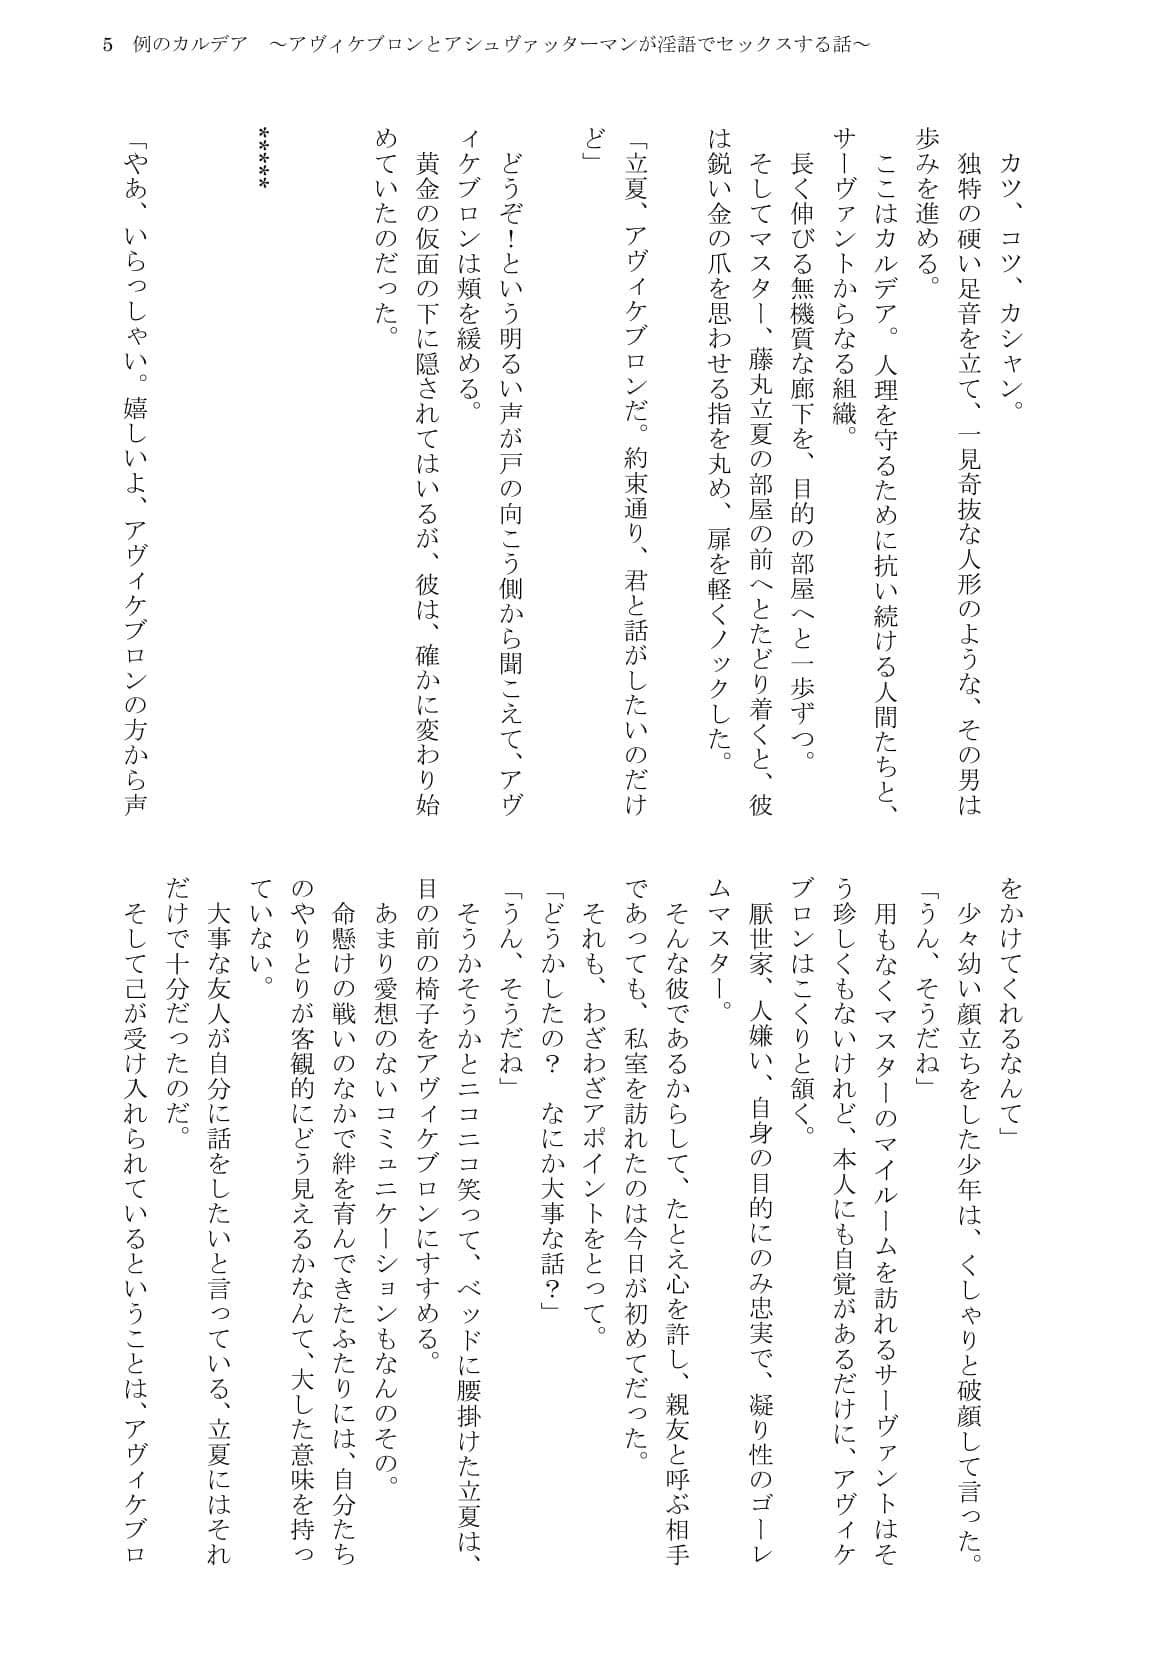 5　例のカルデア　～アヴィケブロンとアシュヴァッターマンが淫語でセックスする話～
　カツ、コツ、カシャン。
　独特の硬い足音を立て、一見奇抜な人形のような、その男は
歩みを進める。
　ここはカルデア。人理を守るために抗い続ける人間たちと、
サーヴァントからなる組織。
　長く伸びる無機質な廊下を、目的の部屋へと一歩ずつ。
　そしてマスター、藤丸立夏の部屋の前へとたどり着くと、彼
は鋭い金の爪を思わせる指を丸め、扉を軽くノックした。
「立夏、アヴィケブロンだ。約束通り、君と話がしたいのだけ
ど」
　どうぞ！という明るい声が戸の向こう側から聞こえて、アヴ
ィケブロンは頬を緩める。
　黄金の仮面の下に隠されてはいるが、彼は、確かに変わり始
めていたのだった。
*****
「やあ、いらっしゃい。嬉しいよ、アヴィケブロンの方から声
をかけてくれるなんて」
　少々幼い顔立ちをした少年は、くしゃりと破顔して言った。
「うん、そうだね」
　用もなくマスターのマイルームを訪れるサーヴァントはそ
う珍しくもないけれど、本人にも自覚があるだけに、アヴィケ
ブロンはこくりと頷く。
　厭世家、人嫌い、自身の目的にのみ忠実で、凝り性のゴーレ
ムマスター。
　そんな彼であるからして、たとえ心を許し、親友と呼ぶ相手
であっても、私室を訪れたのは今日が初めてだった。
　それも、わざわざアポイントをとって。
「どうかしたの？　なにか大事な話？」
「うん、そうだね」
　そうかそうかとニコニコ笑って、ベッドに腰掛けた立夏は、
目の前の椅子をアヴィケブロンにすすめる。
　あまり愛想のないコミュニケーションもなんのその。
　命懸けの戦いのなかで絆を育んできたふたりには、自分たち
のやりとりが客観的にどう見えるかなんて、大した意味を持っ
ていない。
　大事な友人が自分に話をしたいと言っている、立夏にはそれ
だけで十分だったのだ。
　そして己が受け入れられているということは、アヴィケブロ